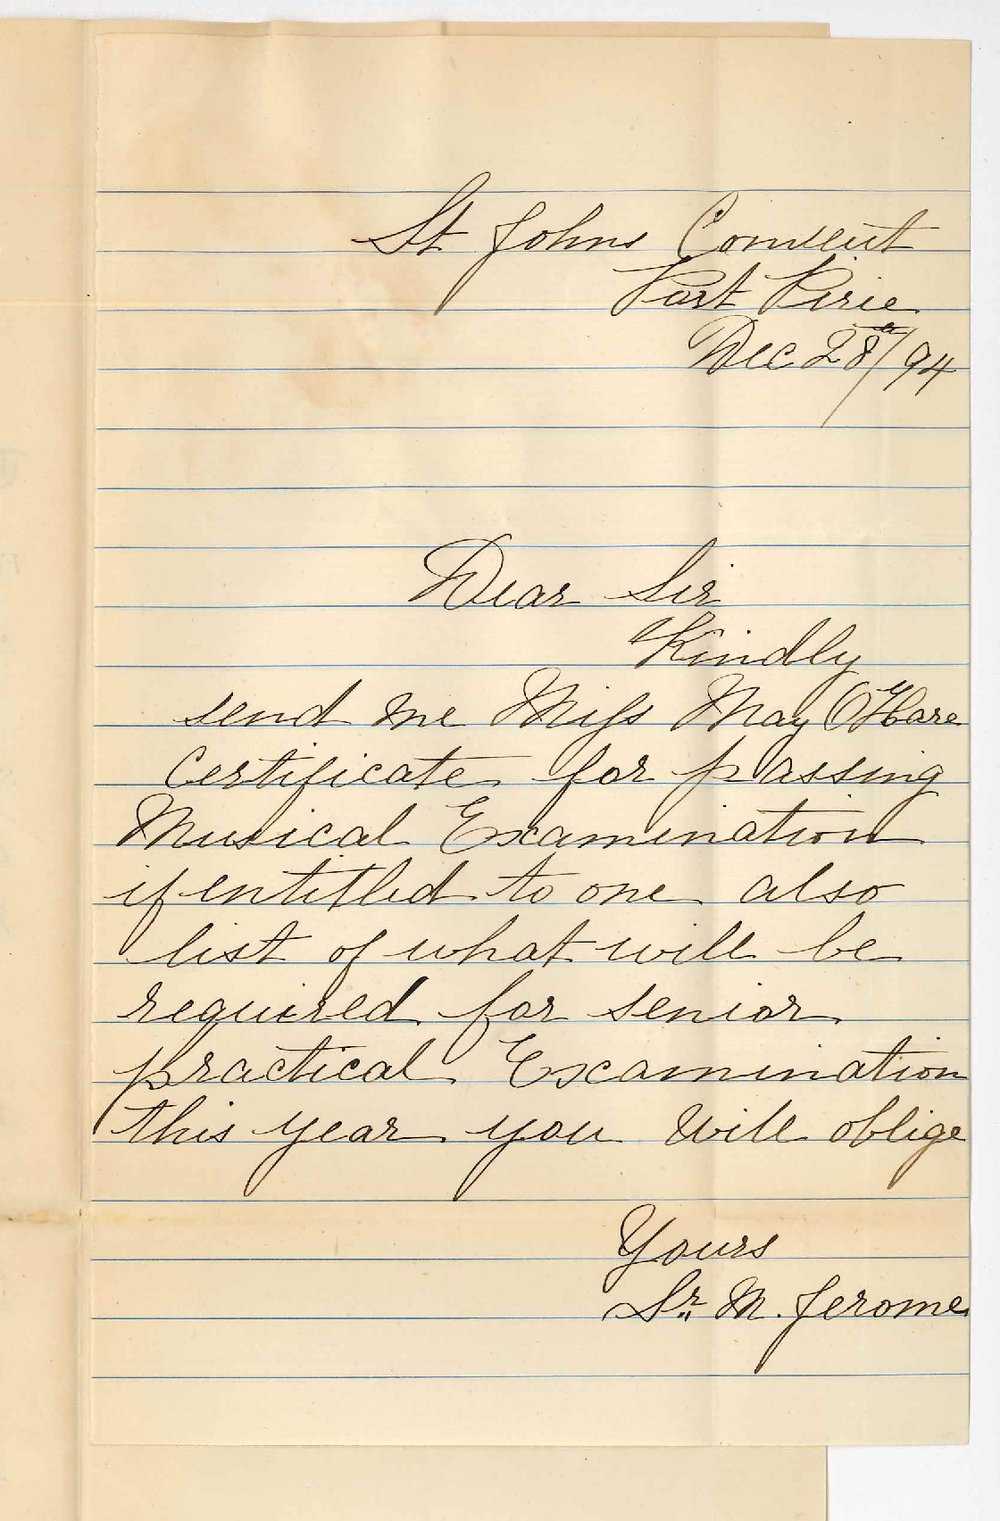 St Johns Convent
Port Pirie
Dec 28th/94
Dear Sir
Kindly
send me Miss May O'Hare
Certificate for passing
Musical Examination
if entitled to one also
list of what will be
required for senior
practical Examination
this year you will oblige
Yours
Sr. M. Jerome